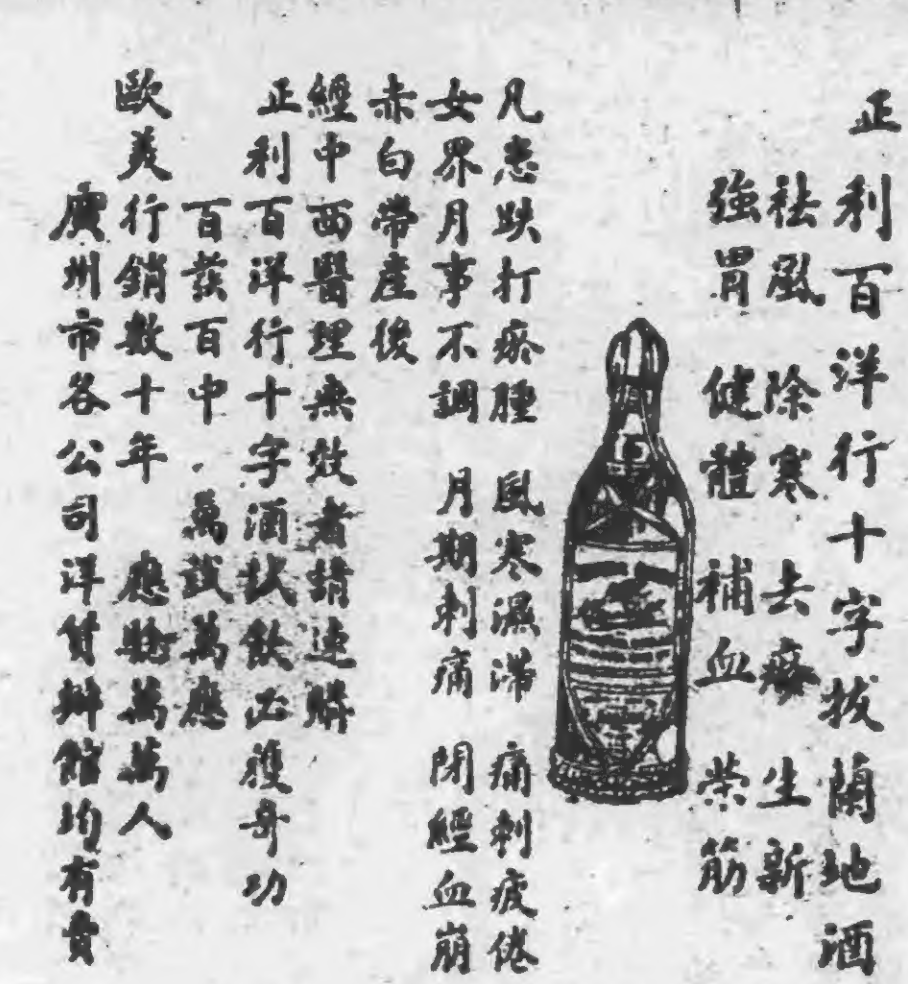 正利百洋行十字拔蘭地酒
祛風 除寒 去瘀 生新
強胃 健體 補血 荣筋
凡患跌打瘀腫 風寒濕滯 痛刺疲倦
女界月事不調 月期刺痛 閉經血崩
赤白帶產後
經中西醫理無效者請速購
正利百洋行十字酒試飲必獲奇功
百發百中 萬試萬應
歐美行銷數十年 應驗萬萬人
廣州市各公司洋貨辦館均有賣